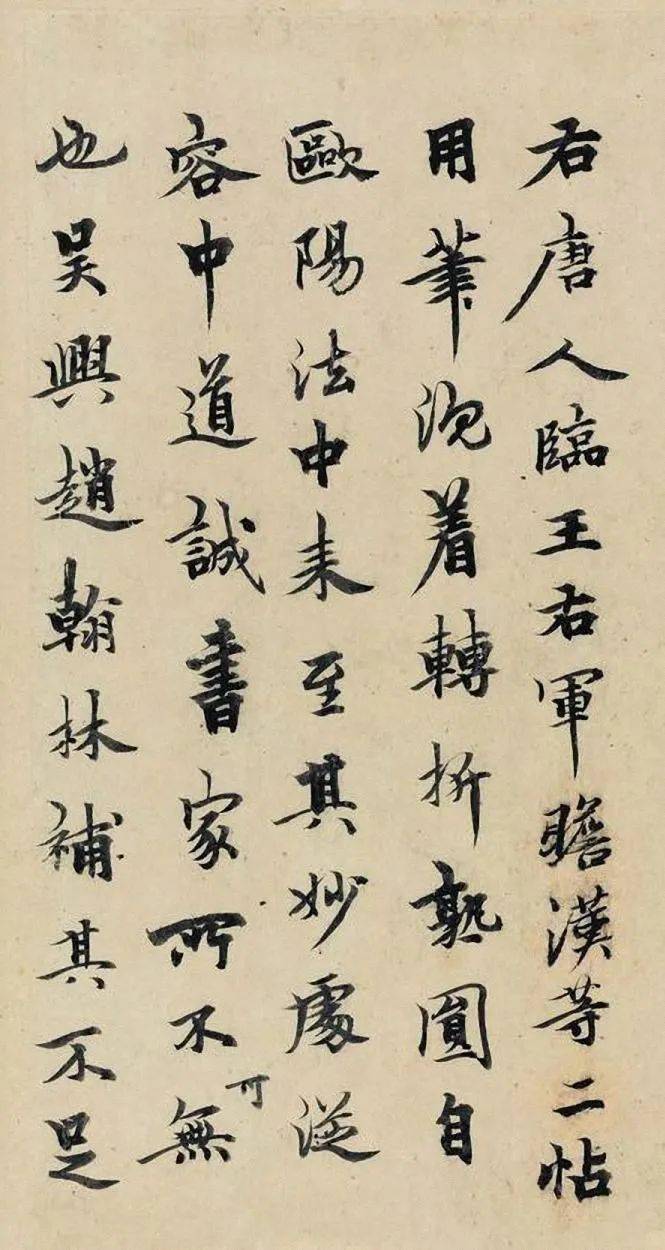 右唐人臨王右軍瞻漢等二帖
用筆沉着轉折熟圓自
歐陽法中来至其妙處從
容中道誠書家所不可無
也吴興趙翰林補其不足